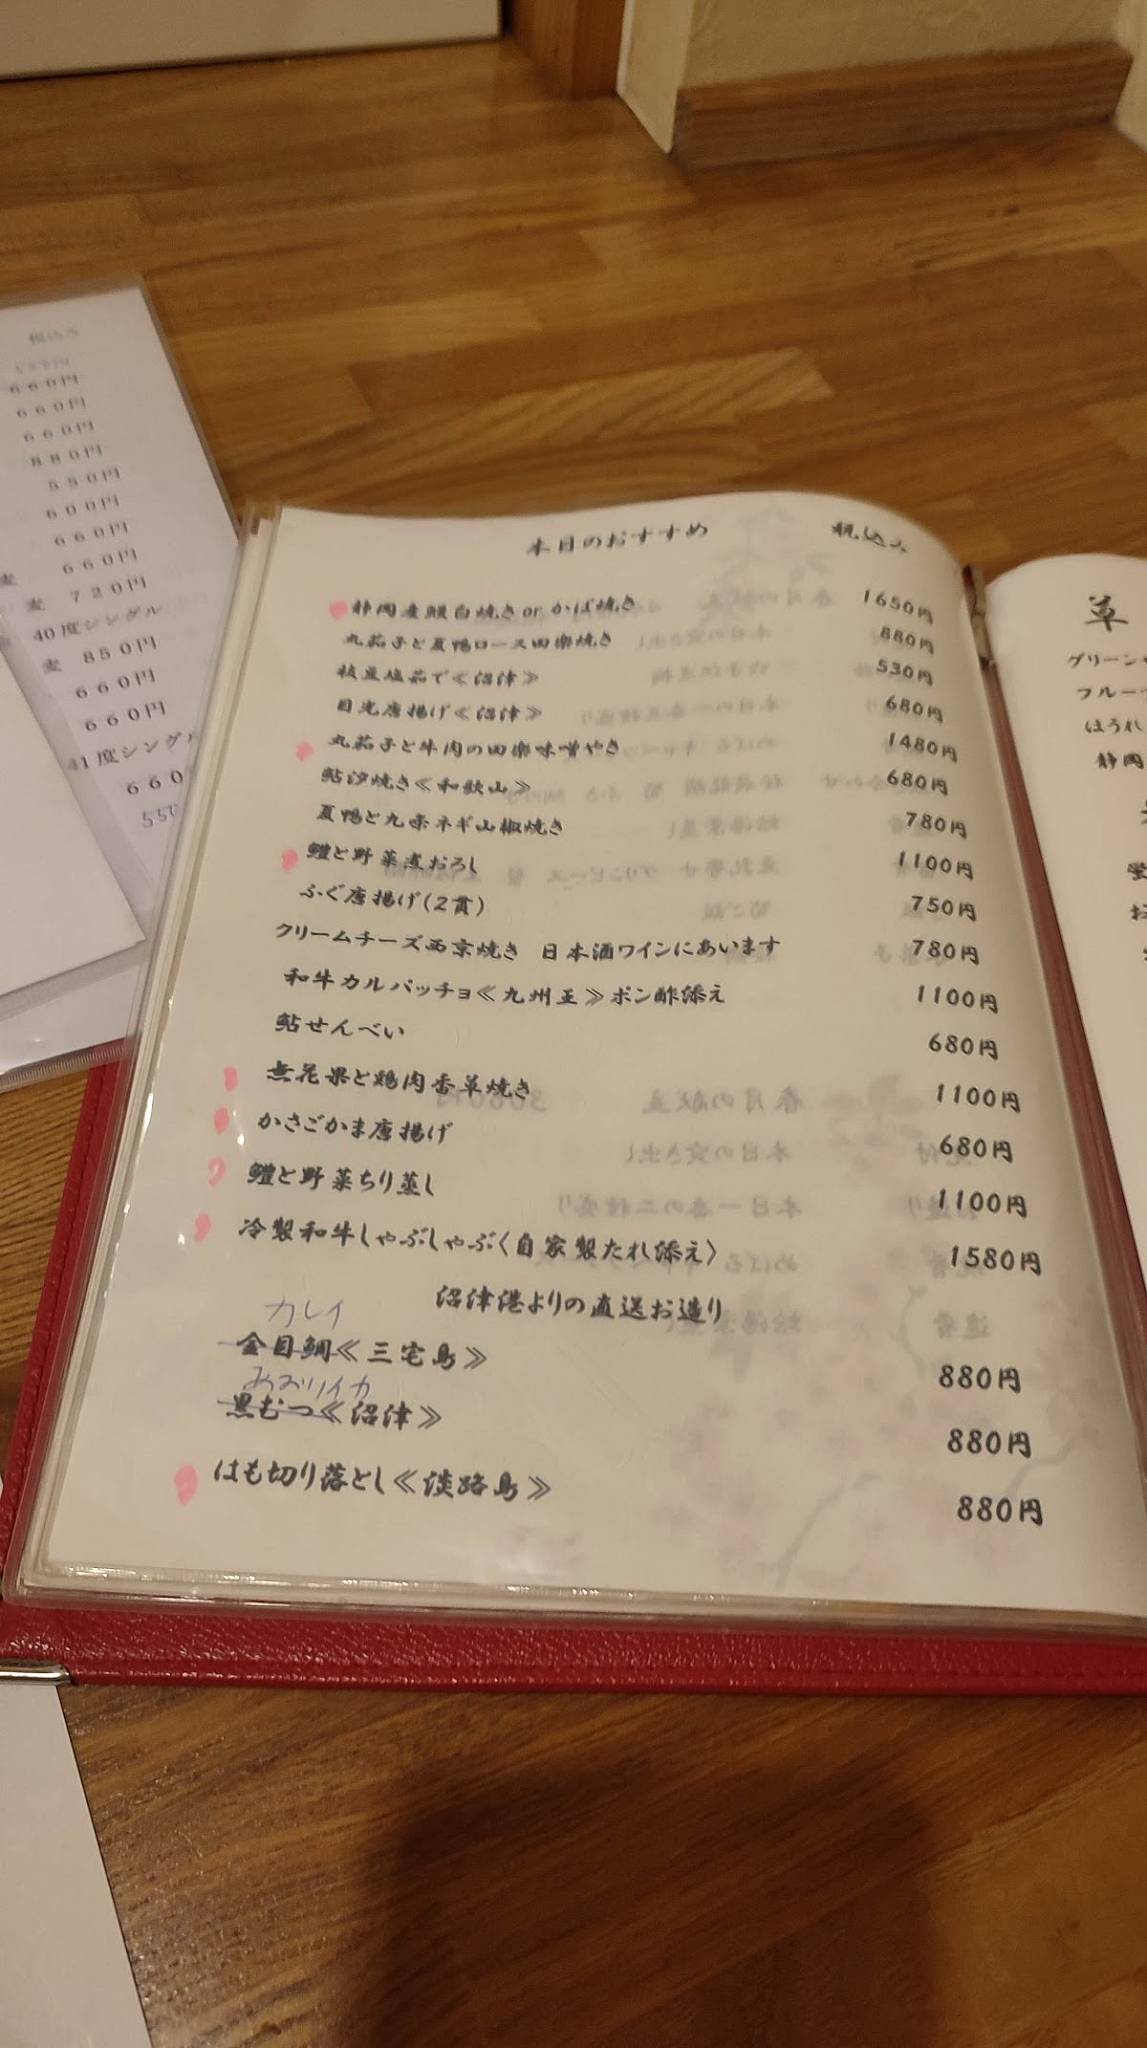 税込み
660円
660円
660円
880円
550円
600円
660円
660円
麦 720円
40度シングル
麦 850円
660円
660円
41度シングル
660
550
本日のおすすめ 税込み
静岡産鰻白焼きor かば焼き 1650円
丸茄子と夏鴨ロース田楽焼き 880円
枝豆塩茹で≪沼津≫ 530円
目光唐揚げ≪沼津≫ 680円
丸茄子と牛肉の田楽味噌やき 1480円
鮎汐焼き≪和歌山≫ 680円
夏鴨と九条ネギ山椒焼き 780円
鱧と野菜煮おろし 1100円
ふぐ唐揚げ(2貫) 750円
クリームチーズ西京焼き 日本酒ワインにあいます 780円
和牛カルパッチョ≪九州王≫ポン酢添え 1100円
鮎せんべい 680円
無花果と鶏肉香草焼き 1100円
かさごかま唐揚げ 680円
鱧と野菜ちり蒸し 1100円
冷製和牛しゃぶしゃぶ〈自家製たれ添え〉 1580円
沼津港よりの直送お造り
カレイ
金目鯛≪三宅島≫ 880円
あおりイカ
黒むつ≪沼津≫ 880円
はも切り落とし≪淡路島≫ 880円
草
グリーン
フルー
ほうれ
静岡